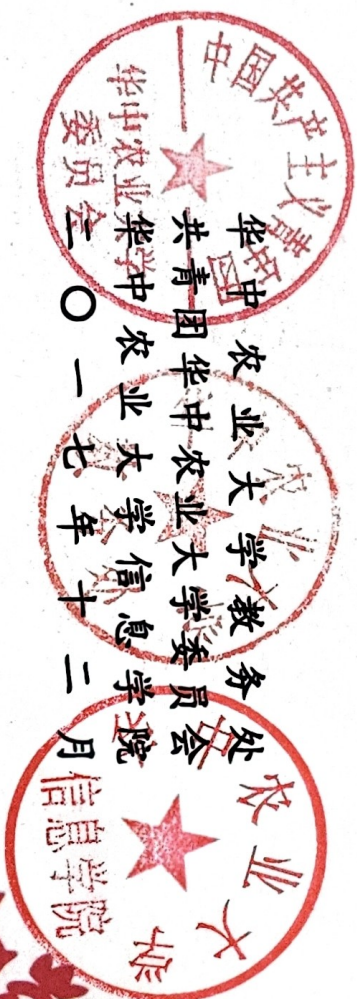 华中农业大学教务处
共青团华中农业大学委员会
华中农业大学信息学院
二〇一七年十二月
中国共产主义青年团
华中农业大学
委员会
农业大学
信息学院